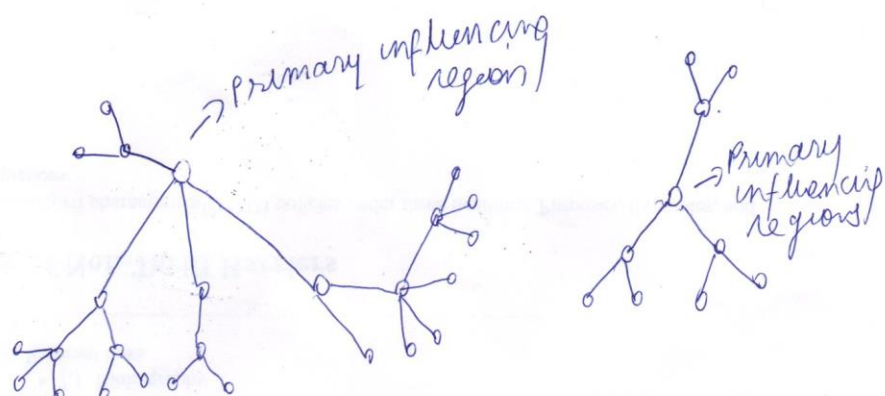 Primary influencing
region
Primary
influencing
regions